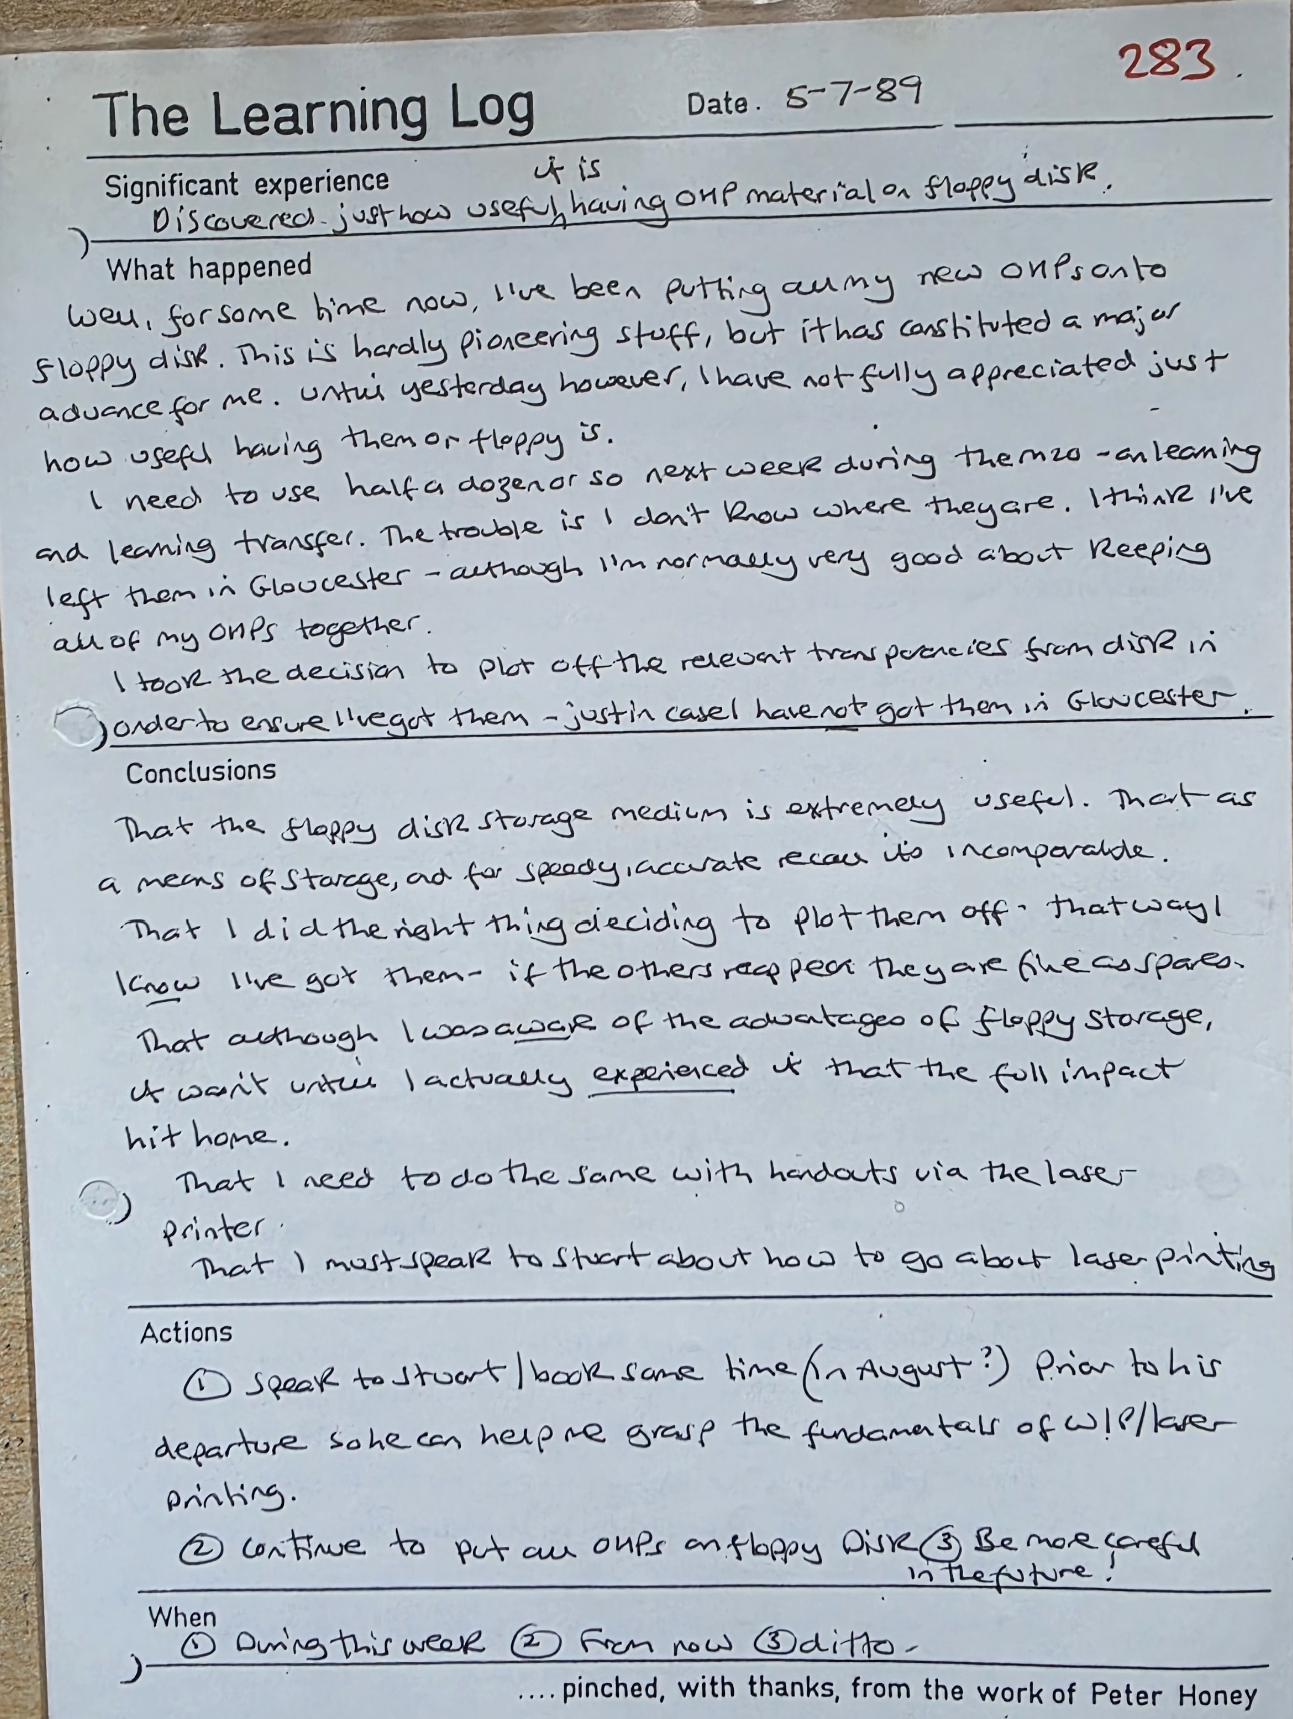 283.
The Learning Log
Date. 5-7-89
Significant experience
it is
Discovered just how useful having OHP material on floppy disk.
What happened
Well, for some time now, I've been putting all my new OHPs onto
floppy disk. This is hardly pioneering stuff, but it has constituted a major
advance for me. Until yesterday however, I have not fully appreciated just
how useful having them on floppy is.
I need to use half a dozen or so next week during the M20 - on learning
and learning transfer. The trouble is I don't know where they are. I think I've
left them in Gloucester - although I'm normally very good about keeping
all of my OHPs together.
I took the decision to plot off the relevant transparencies from disk in
order to ensure I've got them - just in case I have not got them in Gloucester.
Conclusions
That the floppy disk storage medium is extremely useful. That as
a means of storage, and for speedy, accurate recall its incomparable.
That I did the right thing deciding to plot them off - that way I
know I've got them - if the others reappear they are fine as spares.
That although I was aware of the advantages of floppy storage,
it wasn't until I actually experienced it that the full impact
hit home.
That I need to do the same with handouts via the laser
printer.
That I must speak to Stuart about how to go about laser printing
Actions
① Speak to Stuart / book some time (in August?) prior to his
departure so he can help me grasp the fundamentals of W/P/laser
printing.
② Continue to put all OHPs on floppy Disk ③ Be more careful
in the future!
When
① During this week ② From now ③ ditto -
.... pinched, with thanks, from the work of Peter Honey